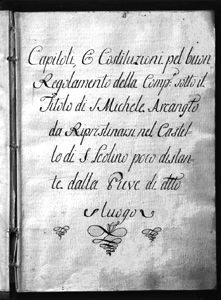 Capitoli, E Costituzioni pel buon
Regolamento della Comp.ª sotto il
Titolo di S. Michele Arcangelo
da Ripristinarsi nel Castel-
lo di S. Leolino poco distan-
te dalla Pieve di dtto
luogo